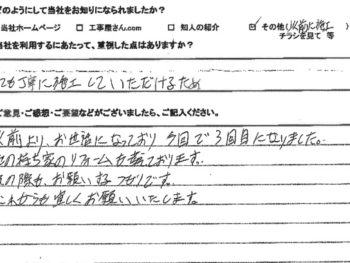 どのようにして当社をお知りになられましたか？
当社ホームページ □ 工事屋さん.com □ 知人の紹介 ☑ その他(以前に施工
チラシを見て 等
当社を利用するにあたって、重視した点はありますか？
ても丁寧に施工していただけるため
ご意見・ご感想・ご要望などがございましたら、ご記入ください。
以前より、お世話になっており 今回で3回目になりました。
の持ち家のリフォームが 考えております。
の際も、お願いするつもりです。
これからも宜しくお願いいたします